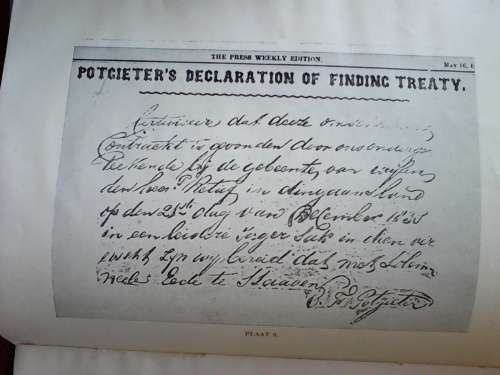 THE PRESS WEEKLY EDITION.
MAY 16, 1
POTGIETER'S DECLARATION OF FINDING TREATY.
dat deeze
Contrackt is gevonden door ons onderge
teekende bij de gebeente van wylen
den heer P Retief in dingaans land
op den 21st dag van December 1838
in een leedere Jager Sak in dien ver
Zyn wy bereid dat met
Eede te Staaven
Potgieter
PLAAT 9.